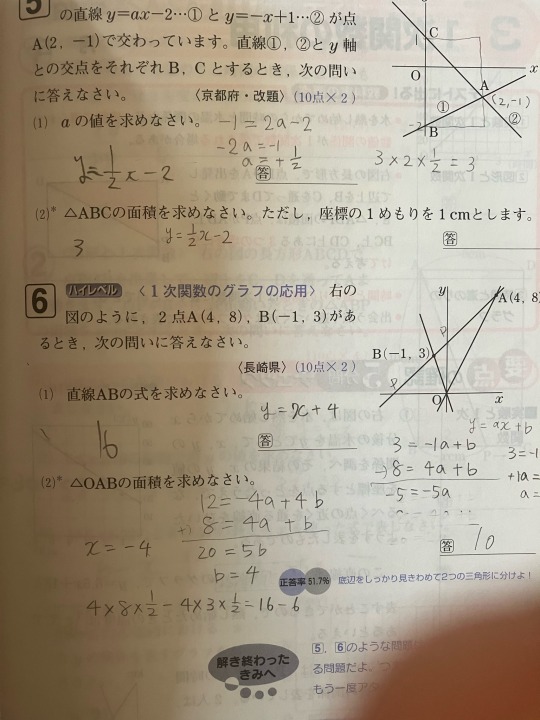 5
の直線y=ax−2…①とy=−x+1…②が点
A(2，−1)で交わっています。直線①，②とy軸
との交点をそれぞれB，Cとするとき，次の問い
に答えなさい。 〈京都府・改題〉(10点×2)
C
O
x
A
(2,-1)
①
②
-2
B
(1) aの値を求めなさい。
-1=2a-2
-2a=-1
a=+1/2
y=1/2x-2
答
3×2×1/2=3
(2)* △ABCの面積を求めなさい。ただし，座標の1めもりを1cmとします。
3
y=1/2x-2
答
6 ハイレベル 〈1次関数のグラフの応用〉 右の
図のように，2点A(4，8)，B(−1，3)があ
るとき，次の問いに答えなさい。
〈長崎県〉(10点×2)
y
A(4，8)
P
B(−1，3)
P
O
x
(1) 直線ABの式を求めなさい。
y=x+4
16
答
y=ax+b
3=-1a+b
8=4a+b
-5=-5a
3=-1
+1a=
a=
(2)* △OABの面積を求めなさい。
12=-4a+4b
+) 8=4a+b
20=5b
b=4
x=-4
答 10
正答率 51.7% 底辺をしっかり見きわめて2つの三角形に分けよ！
4×8×1/2-4×3×1/2=16-6
解き終わった
きみへ
5，6のような問題
る問題だよ。
もう一度ア